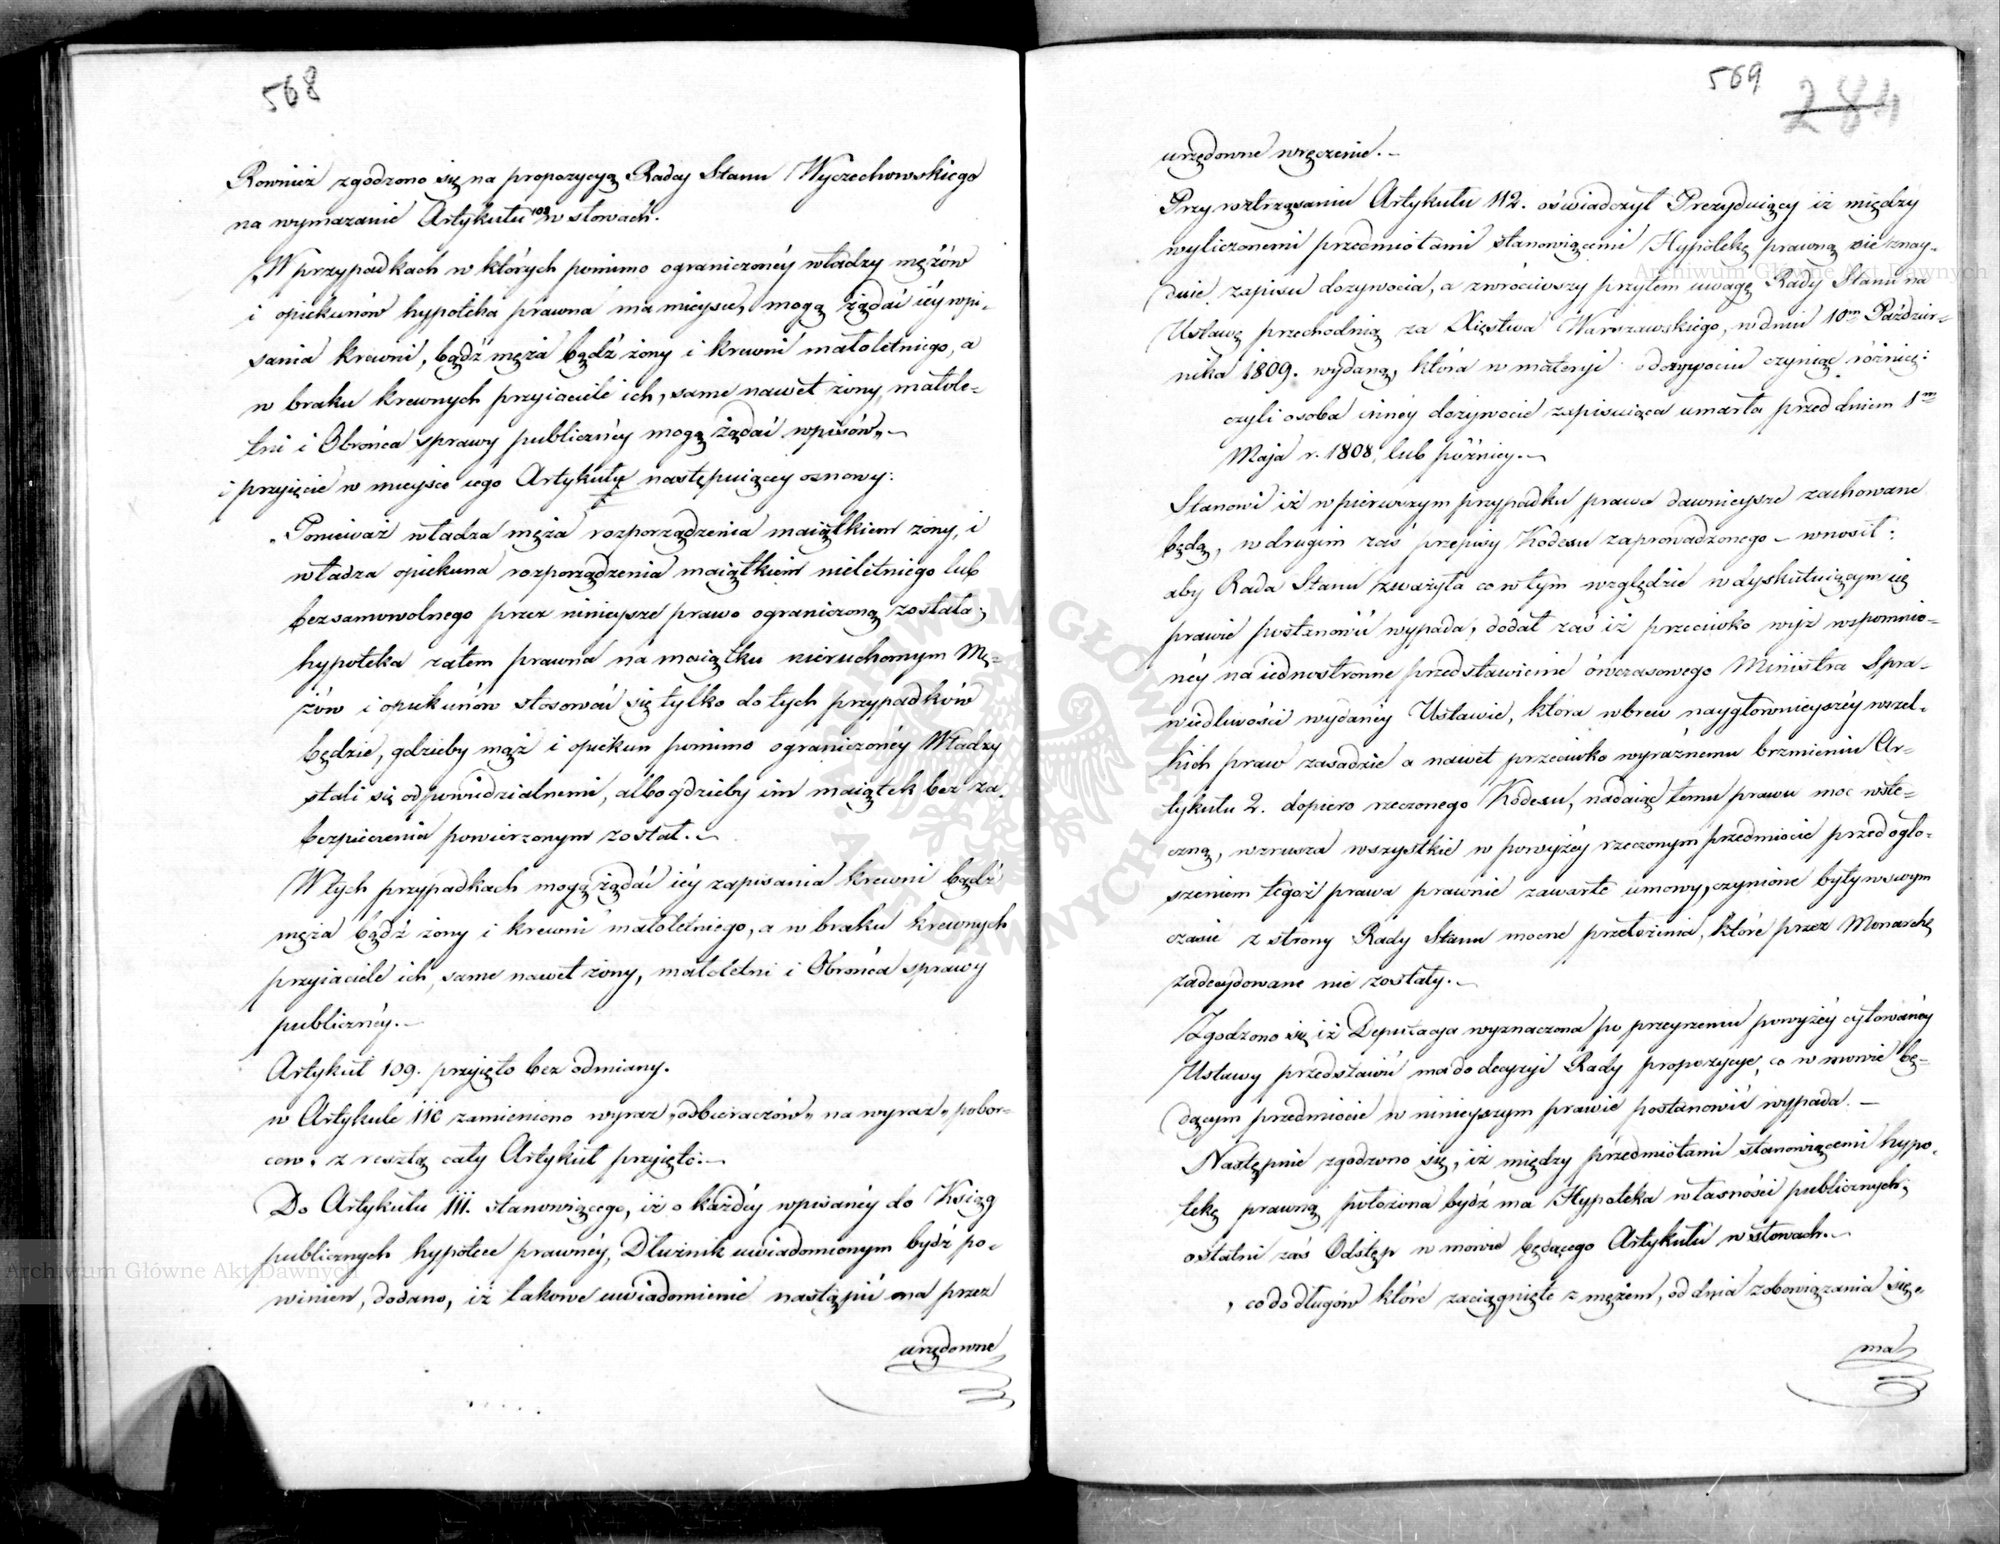 568
Rownież zgodzono się na propozycyą Radcy Stanu Wyczechowskiego
na wymazanie Artykułu 108 w słowach.
„W przypadkach w których pomimo ograniczonéy władzy mężów
i opiekunów hypoteka prawna ma mieysce, mogą żądać iéy wpi-
sania krewni, bądź męża bądź żony i krewni małoletniego, a
w braku krewnych przyiaciele ich, same nawet żony, małole-
tni i Obrońca sprawy publicznéy mogą żądać wpisów„
i przyięcie w mieysce iego Artykułu następuiącey osnowy:
„Ponieważ władza męża rozporządzenia maiątkiem żony, i
władza opiekuna rozporządzenia maiątkiem nieletniego lub
bezsamowolnego przez ninieysze prawo ograniczoną została;
hypoteka zatem prawna na maiątku nieruchomym Mę-
żów i opiekunów stosować się tylko do tych przypadków
będzie, gdzieby mąż i opiekun pomimo ograniczonéy Władzy
stali się odpowiedzialnemi, albo gdzieby im maiątek bez za-
bezpieczenia powierzonym został.
W tych przypadkach mogą żądać iéy zapisania krewni bądź
męża bądź żony i krewni małoletniego, a w braku krewnych
przyiaciele ich, same nawet żony, małoletni i Obrońca sprawy
publicznéy.
Artykuł 109. przyięto bez odmiany.
w Artykule 110 zamieniono wyraz „odbieraczów„ na wyraz „pobor-
cow. z resztą cały Artykuł przyięto.
Do Artykułu 111. stanowiącego, iż o każdéy wpisanéy do Ksiąg
publicznych hypotece prawnéy, Dłużnik uwiadomionym bydź po-
winien, dodano, iż takowe uwiadomienie nastąpić ma przez
urzędowne
569
284
urzędowne wręczenie.
Przy roztrząsaniu Artykułu 112. oświadczył Prezyduiący iż między
wyliczonemi przedmiotami stanowiącemi Hypotekę prawną nie znay-
duie zapisu dożywocia, a zwróciwszy przytem uwagę Rady Stanu na
Ustawę przechodnią za Xięstwa Warszawskiego, w dniu 10m Paździer-
nika 1809. wydaną, która w materyi o dożywociu czyniąc różnicę:
czyli osoba inney dożywocie zapisuiąca umarła przed dniem 1m
Maja r. 1808, lub późniey.
Stanowi iż w pierwszym przypadku prawa dawnieysze zachowane
będą, w drugim zaś przepisy Kodexu zaprowadzonego – wnosił:
aby Rada Stanu zważyła co w tym względzie w dyskutuiącym się
prawie postanowić wypada, dodał zaś iż przeciwko wyż wspomnio-
néy na iednostronne przedstawienie ówczasowego Ministra Spra-
wiedliwości wydanéy Ustawie, która wbrew naygłównieyszéy wszel-
kich praw zasadzie a nawet przeciwko wyraźnemu brzmieniu Ar-
tykułu 2. dopiero rzeczonego Kodexu, nadaiąc temu prawu moc wste-
czną, wzrusza wszystkie w powyżéy rzeczonym przedmiocie przed ogło-
szeniem tegoż prawa prawnie zawarte umowy, czynione były w swym
czasie z strony Rady Stanu mocne przełożenia, które przez Monarchę
zadecydowane nie zostały.
Zgodzono się iż Deputacya wyznaczona po przeyrzeniu powyżéy cytowanéy
Ustawy przedstawić ma do decyzyi Rady propozycye, co w mowie bę-
dącym przedmiocie w ninieyszym prawie postanowić wypada. –
Następnie zgodzono się, iż między przedmiotami stanowiącemi hypo-
tekę prawną położona bydź ma Hypoteka własności publicznych;
ostatni zaś Odstęp w mowie będącego Artykułu w słowach.
„ co do długów które zaciągnięte z mężem, od dnia zobowiązania się„
ma
Archiwum Główne Akt Dawnych
Archiwum Główne Akt Dawnych
ARCHIWUM GŁÓWNE AKT DAWNYCH